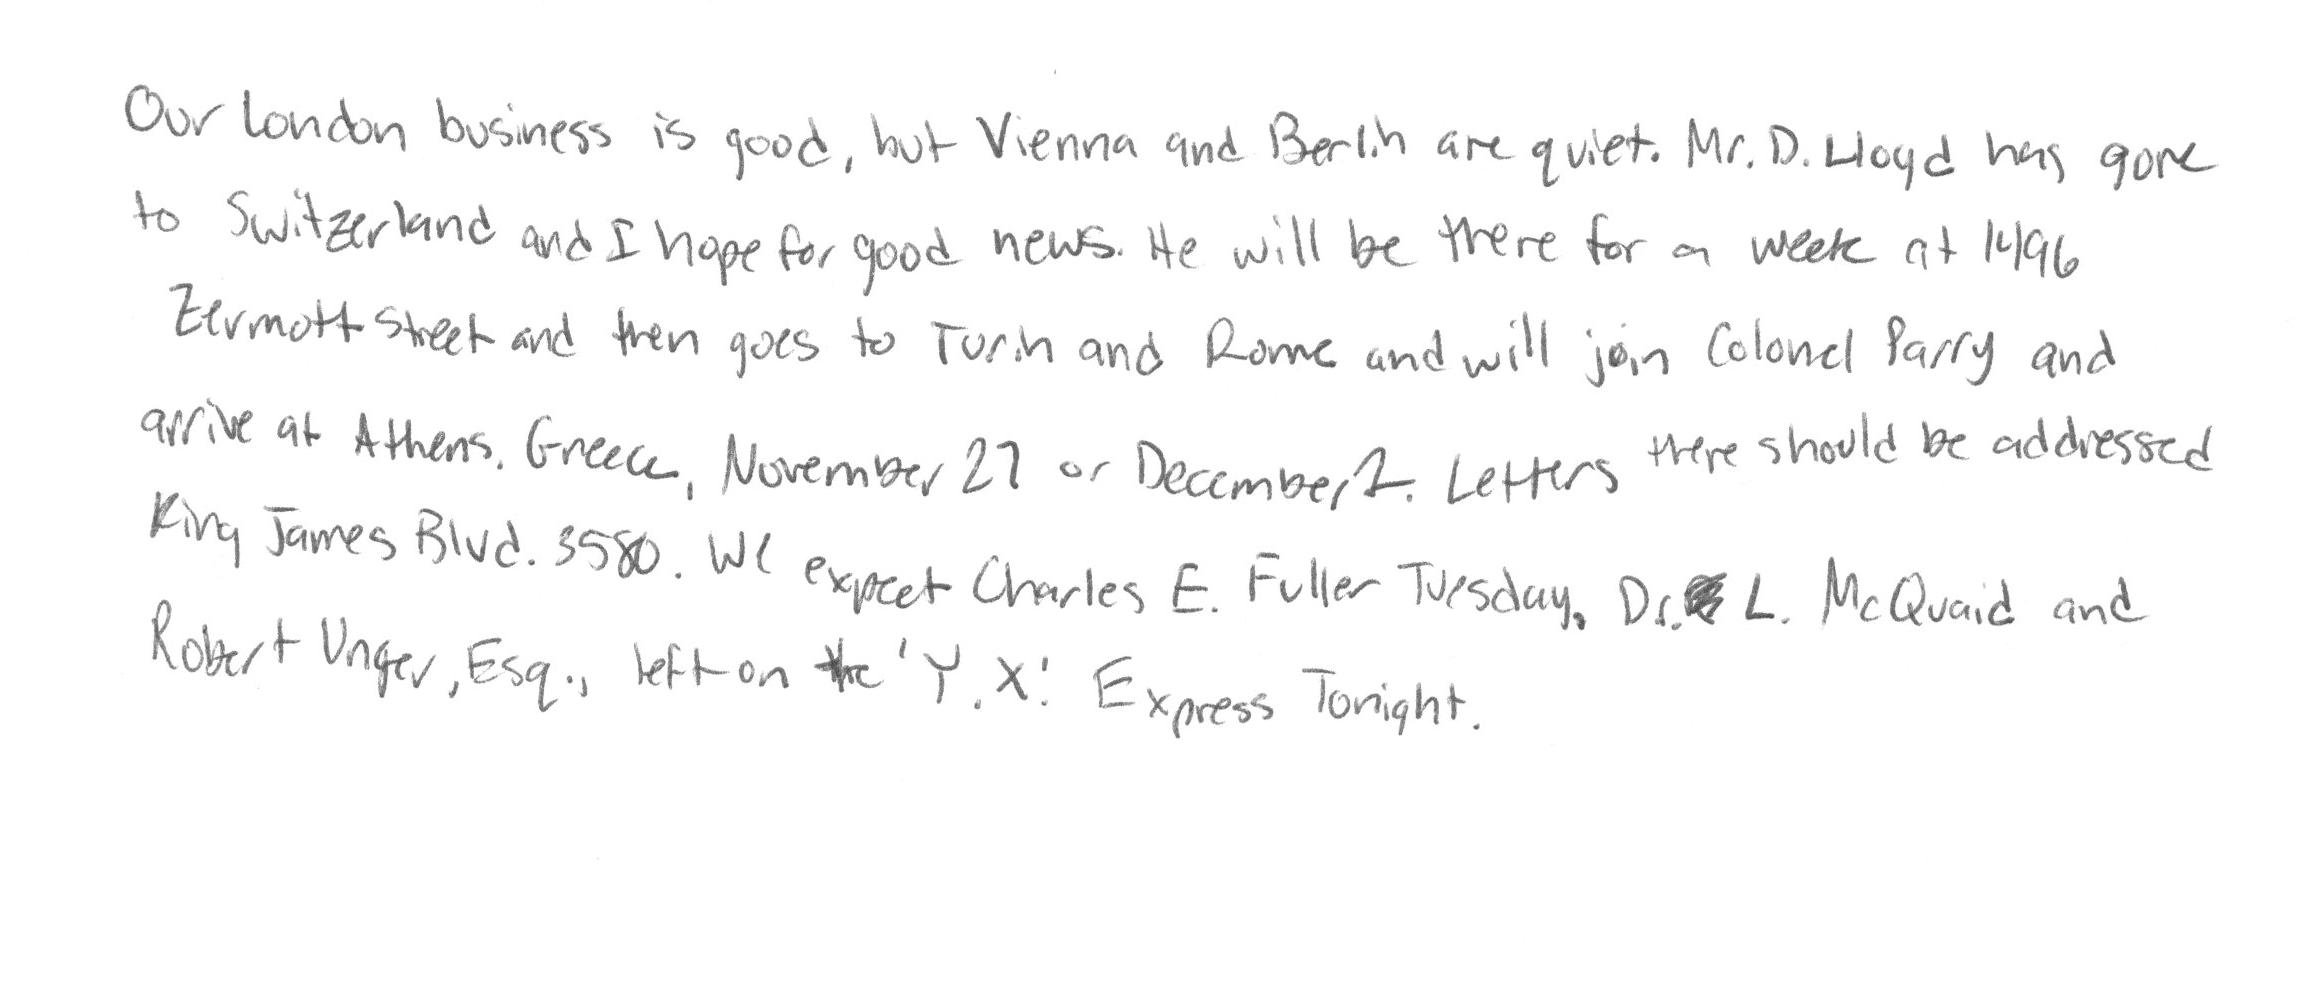 Our London business is good, but Vienna and Berlin are quiet. Mr. D. Lloyd has gone
to Switzerland and I hope for good news. He will be there for a week at 1496
Zermott Street and then goes to Turin and Rome and will join Colonel Parry and
arrive at Athens, Greece, November 27 or December 2. Letters there should be addressed
King James Blvd. 3580. We expect Charles E. Fuller Tuesday. Dr. L. McQuaid and
Robert Unger, Esq., left on the 'Y.X.' Express Tonight.